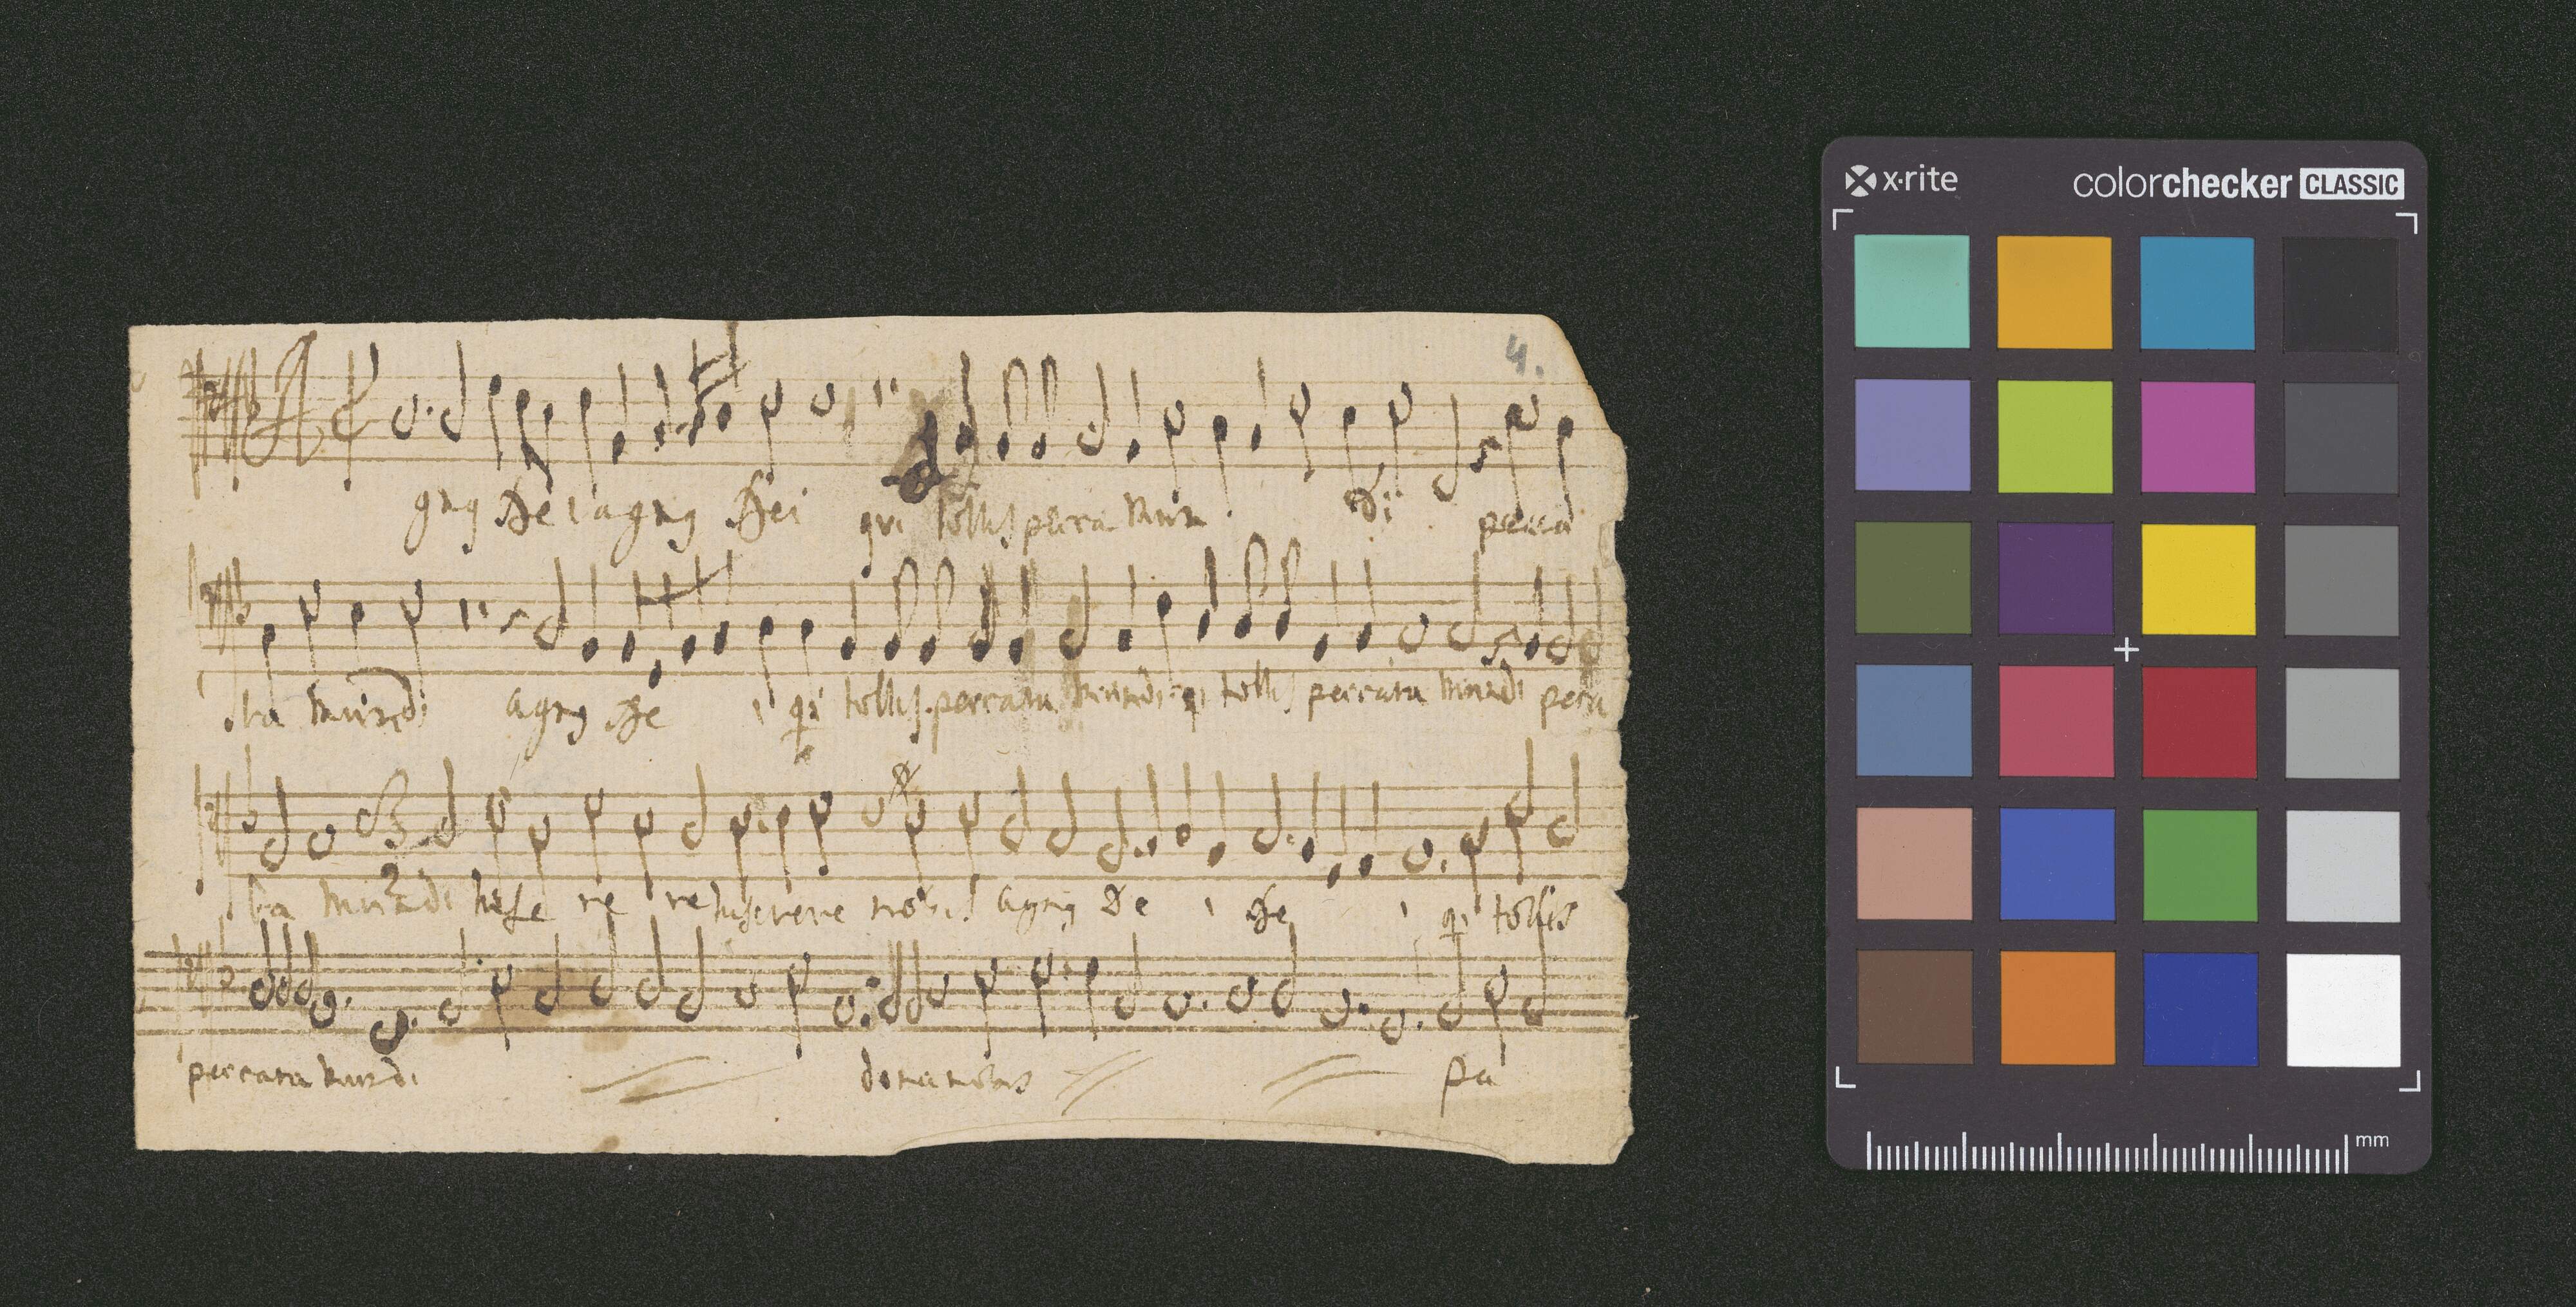 4.
A
gnꝯ Dei agnꝯ Dei qui tollis pecca mun di pecca
ta mundi agnꝯ De i qi tollis peccata mundi qi tollis peccata mundi pecca
ta mundi mise re re miserere nobis agnꝯ De i De i qi tollis
peccata mundi dona nobis pa
x·rite
colorchecker CLASSIC
mm